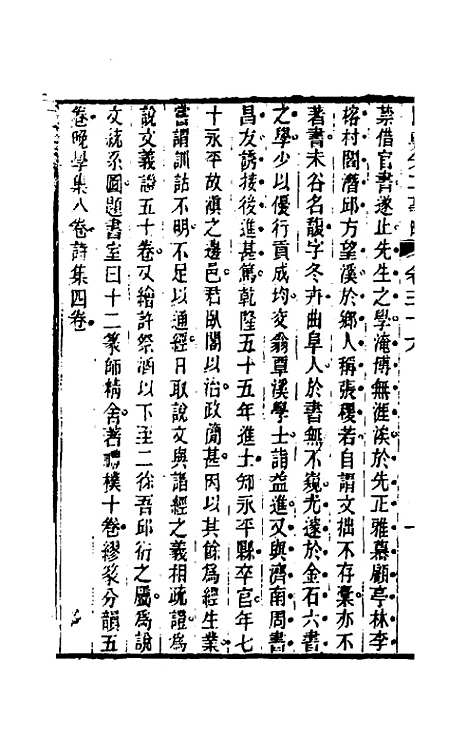 禁借官書遂止先生之學淹博無涯涘於先正雅慕顧亭林李
榕村閻潛邱方望溪於鄉人稱張稷若自謂文拙不存稾亦不
著書未谷名馥字冬卉曲阜人於書無不窺尤邃於金石六書
之學少以優行貢成均交翁覃溪學士詣益進又與濟南周書
昌友誘接後進甚篤乾隆五十五年進士知永平縣卒官年七
十永平故滇之邊邑君臥閣以治政簡甚因以其餘為經生業
嘗謂訓詁不明不足以通經日取說文與諸經之義相疏證為
說文義證五十卷又繪許祭酒以下至二徐吾邱衍之屬為說
文統系圖題書室曰十二篆師精舍著札樸十卷繆篆分韻五
卷晚學集八卷詩集四卷